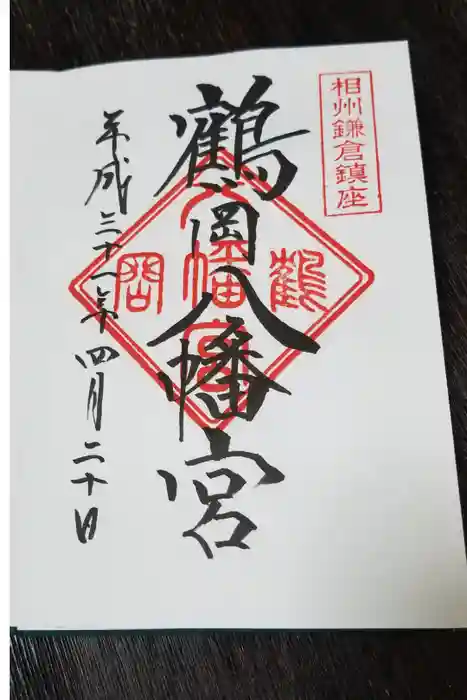 相州鎌倉鎮座
鶴岡八幡宮
鶴
八幡宮
岡
平成三十一年四月二十日